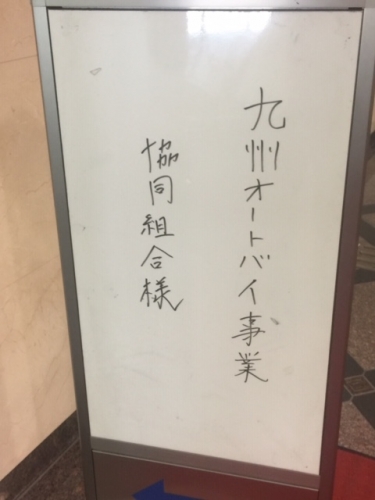 九州オートバイ事業
協同組合様